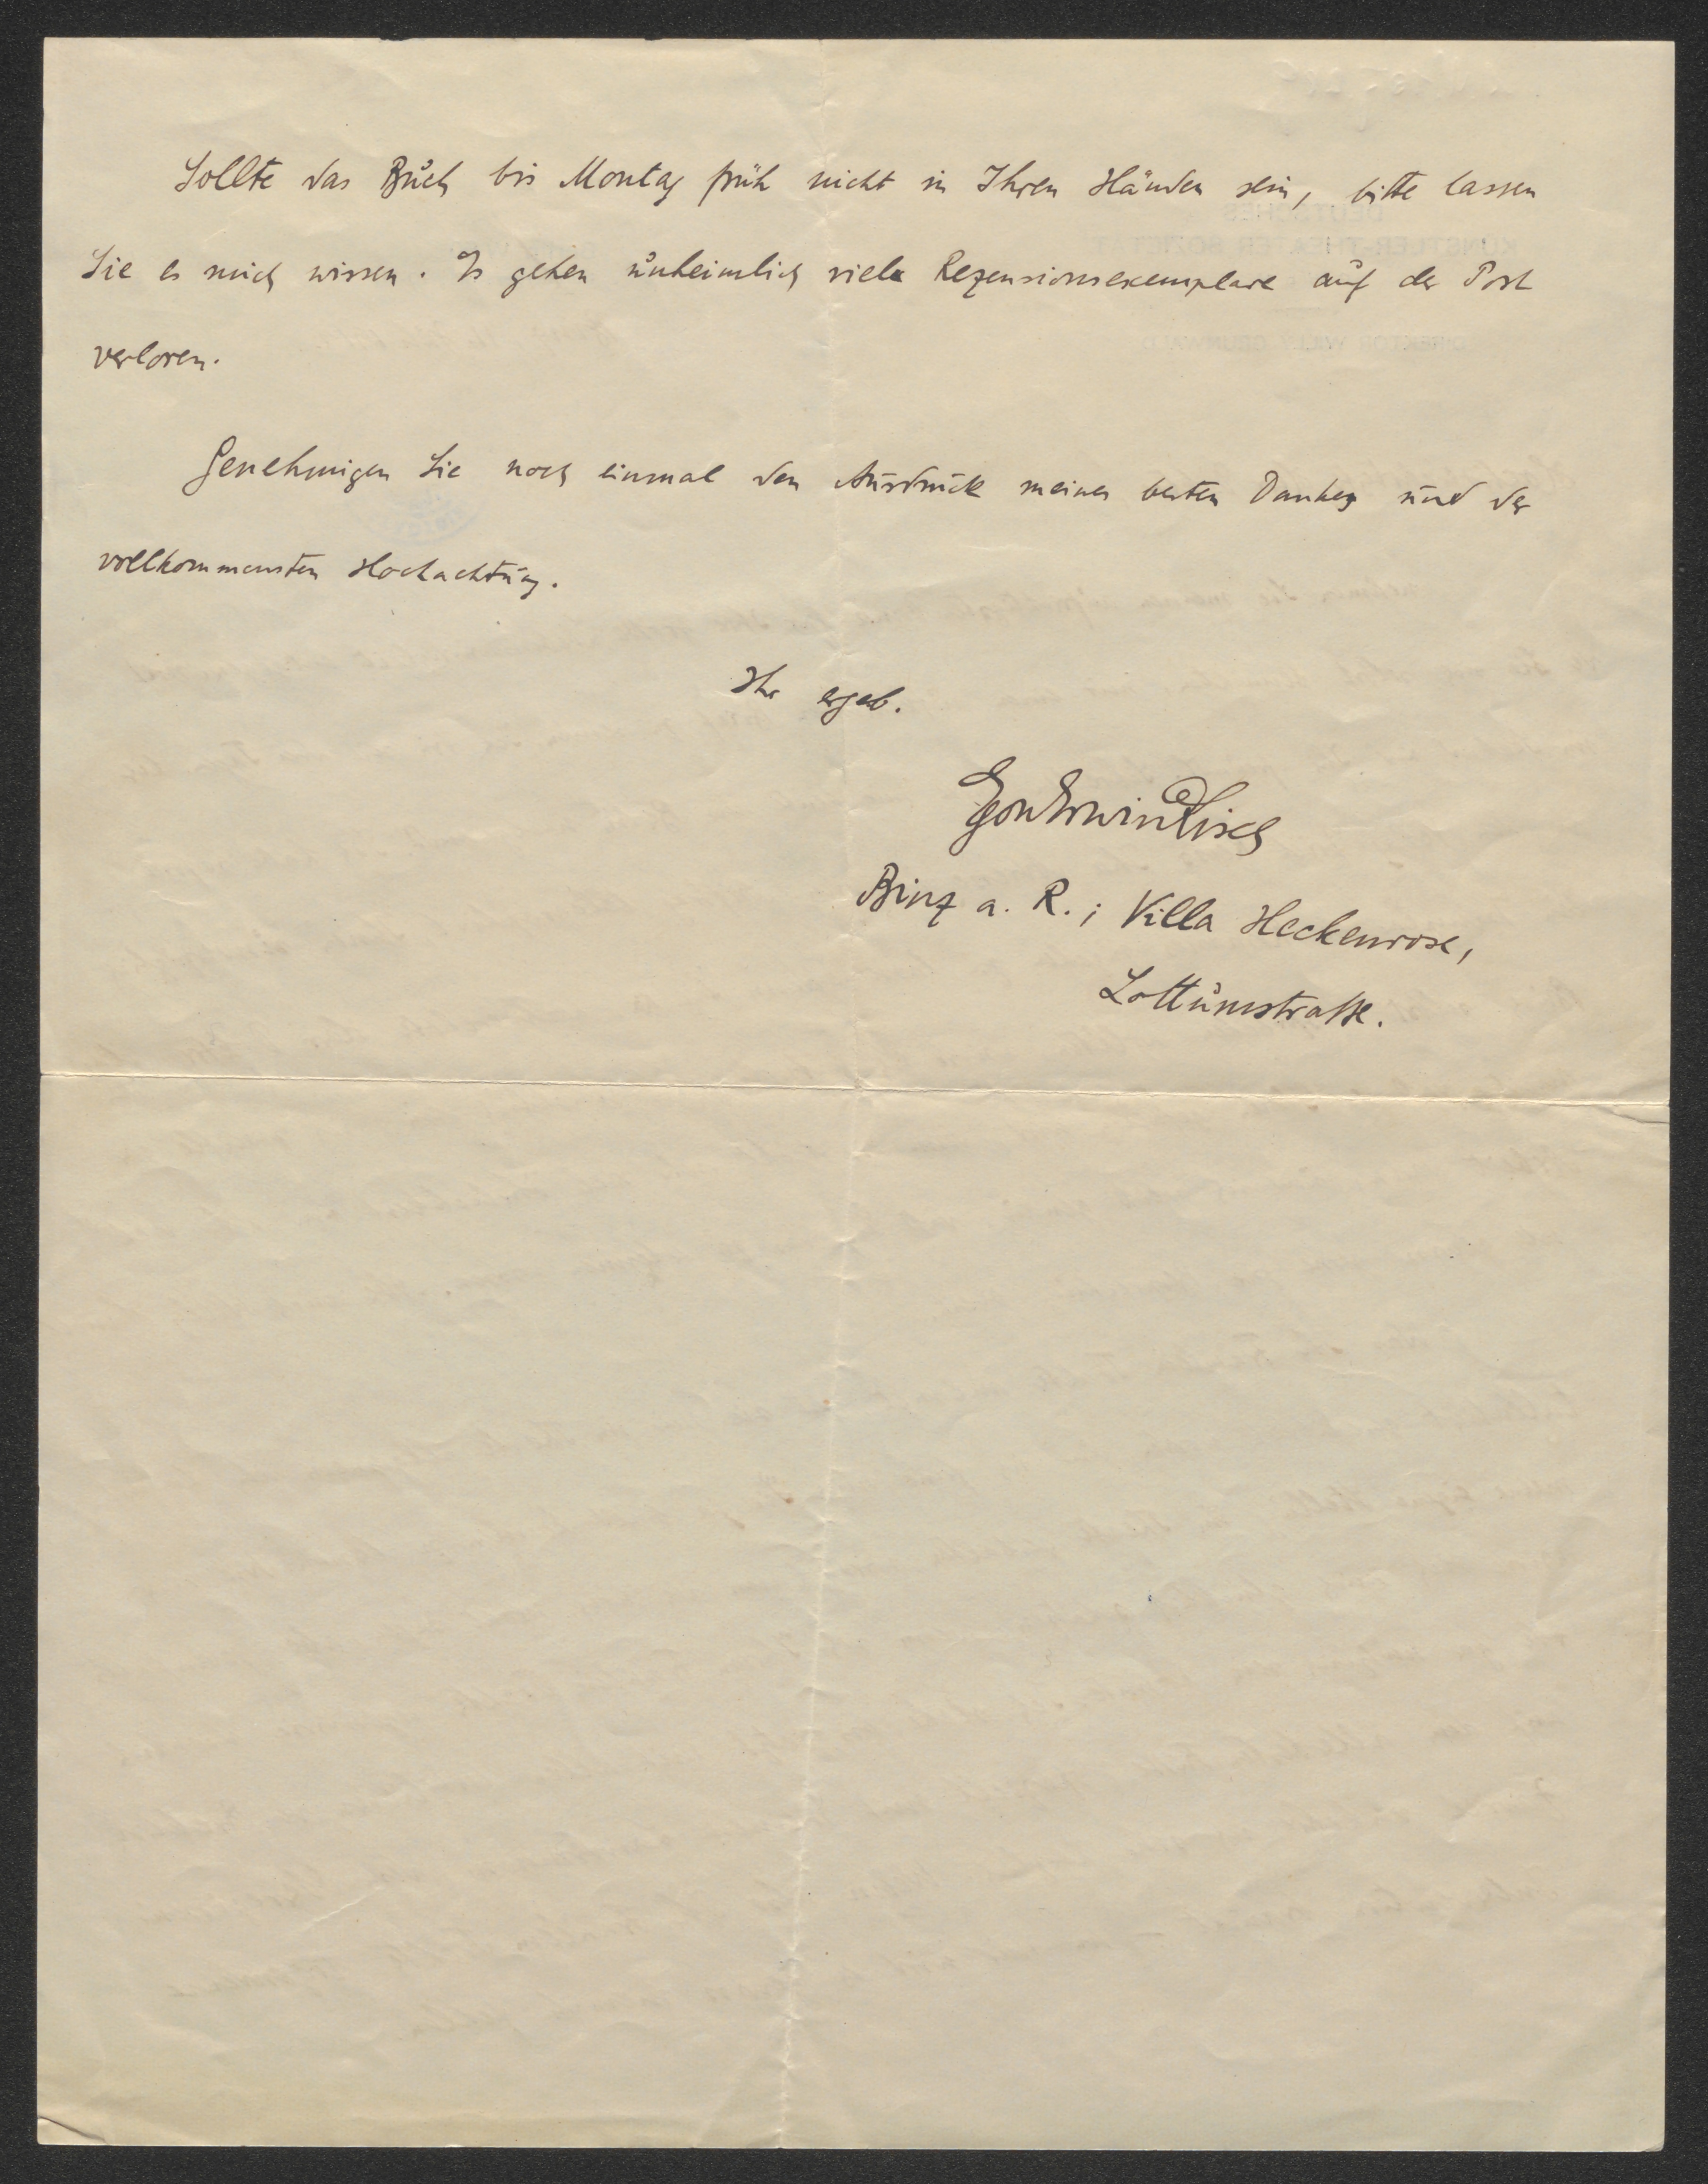 Sollte das Buch bis Montag früh nicht in Ihren Händen sein, bitte lassen
Sie es mich wissen. Es gehen unheimlich viele Rezensionsexemplare auf der Post
verloren.
Genehmigen Sie noch einmal den Ausdruck meines besten Dankes und der
vollkommensten Hochachtung.
Ihr ergeb.
Egon Erwin Kisch
Binz a. R.; Villa Heckenrose,
Lottumstraße.